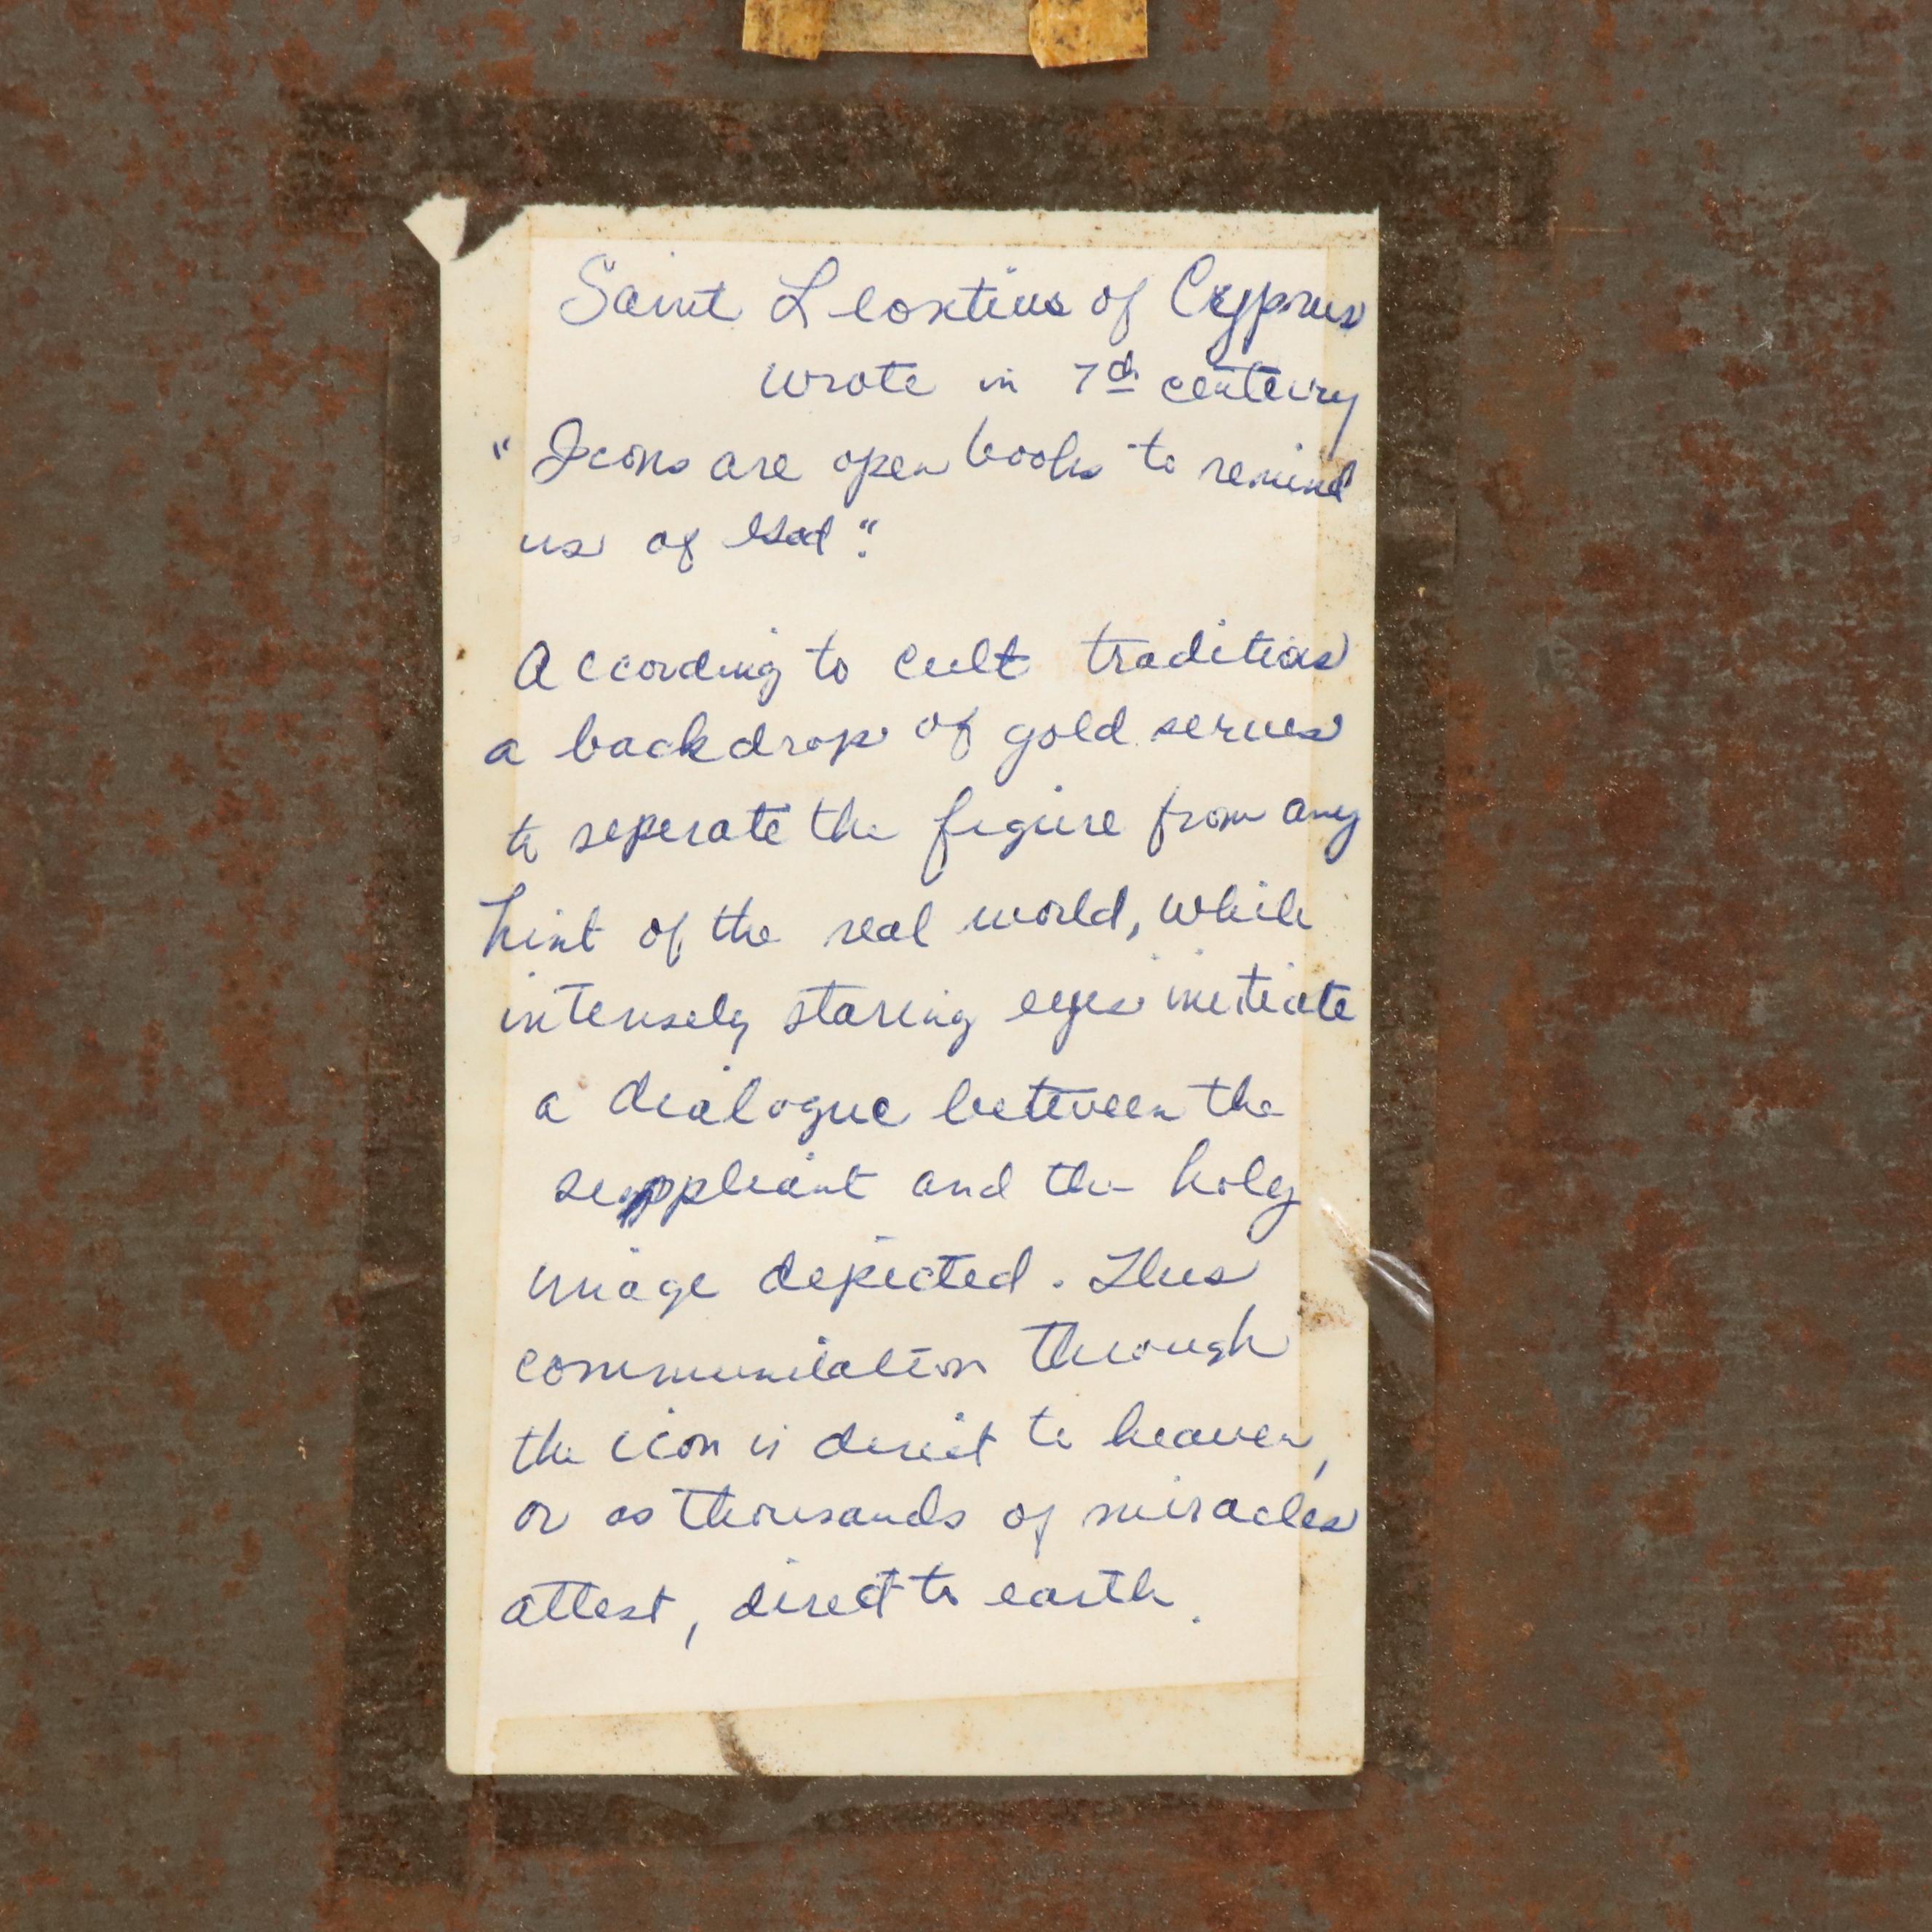 Saint Leontius of Cyprus
wrote in 7th century
"Icons are open books to remind
us of God".
According to cult traditions
a backdrop of gold serves
to seperate the figure from any
hint of the real world, while
intensely staring eyes initiate
a dialogue between the
suppliant and the holy
image depicted. Thus
communication through
the icon is direct to heaven,
or as thousands of miracles
attest, direct to earth.